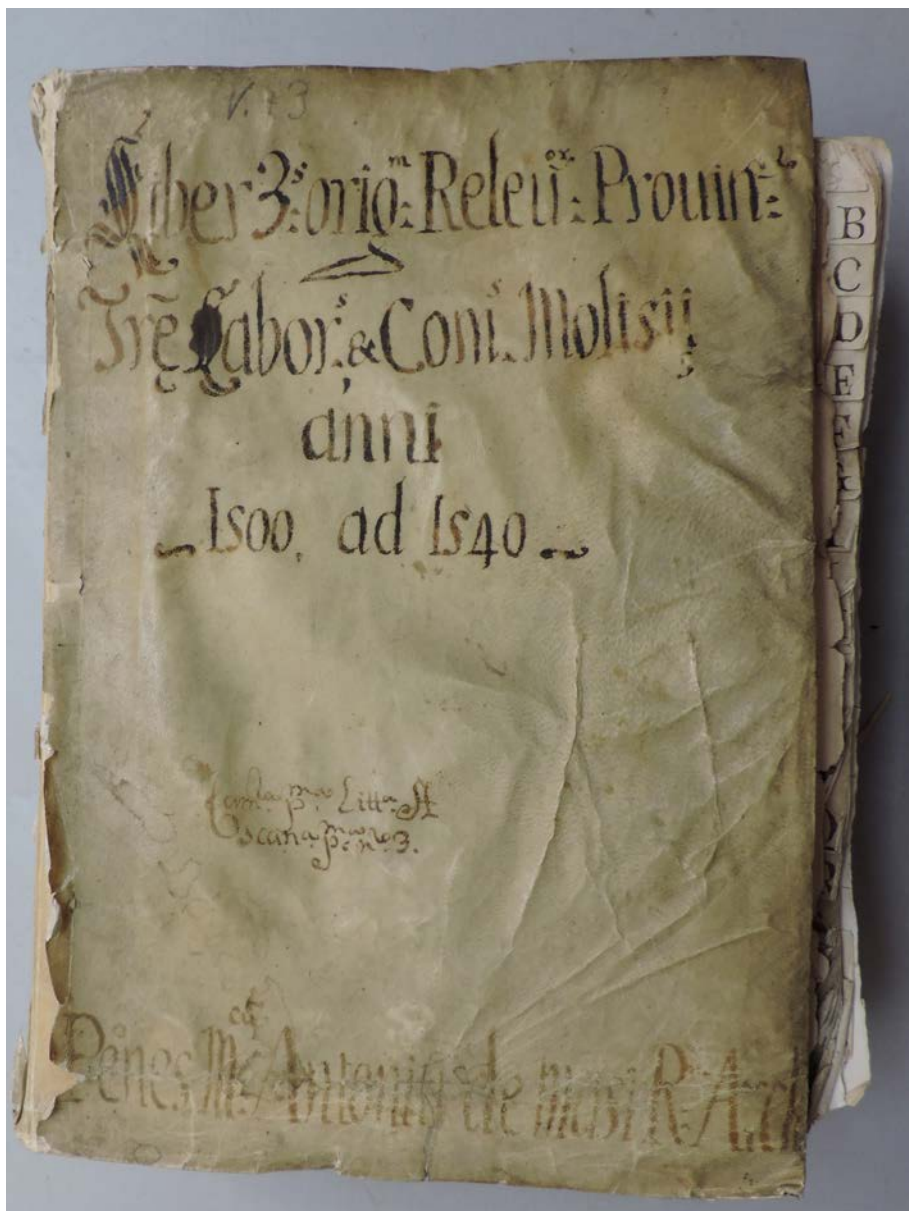 V. 13
Liber 3.s orig.m Releu.or Prouin.
Trę Labor.s & Com.s Molisij
anni
1500. ad 1540
Litt.a A
Scan.a p.ma n.o 3.
Penes M.cum Antoniū de Masi R. A.
B
C
D
E
F